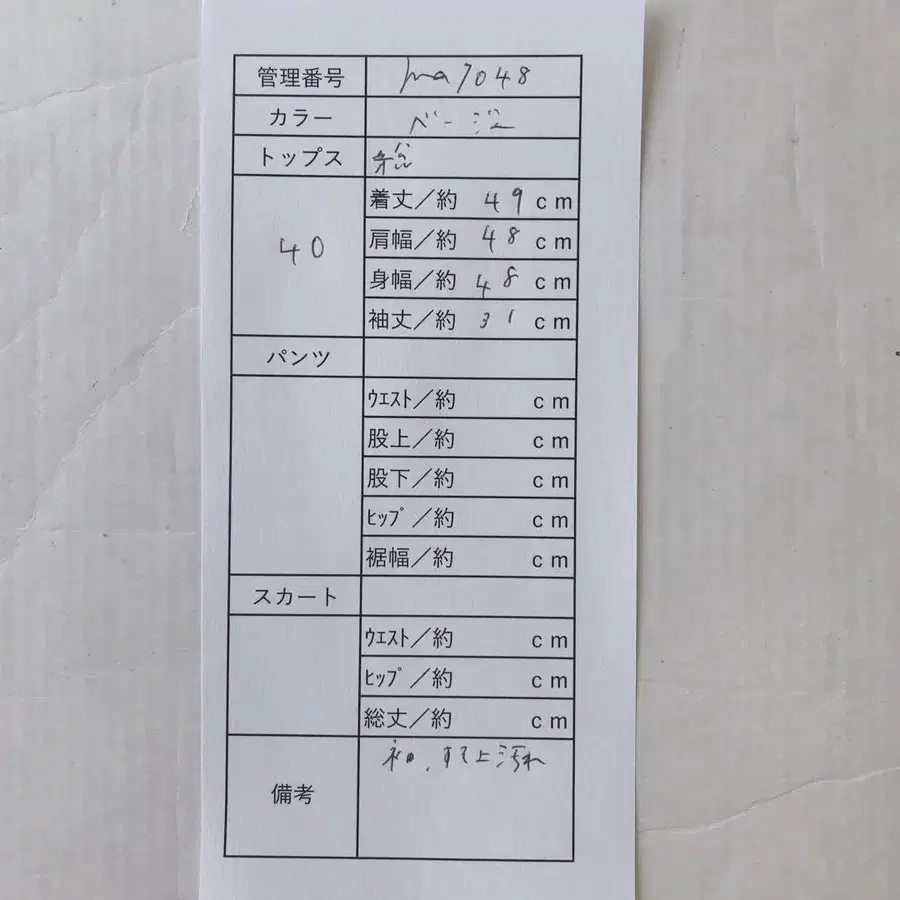 管理番号 ma7048
カラー ベージュ
トップス
40
着丈／約 49 cm
肩幅／約 48 cm
身幅／約 48 cm
袖丈／約 31 cm
パンツ
ｳｴｽﾄ／約 cm
股上／約 cm
股下／約 cm
ﾋｯﾌﾟ／約 cm
裾幅／約 cm
スカート
ｳｴｽﾄ／約 cm
ﾋｯﾌﾟ／約 cm
総丈／約 cm
備考 袖、すそ上汚れ